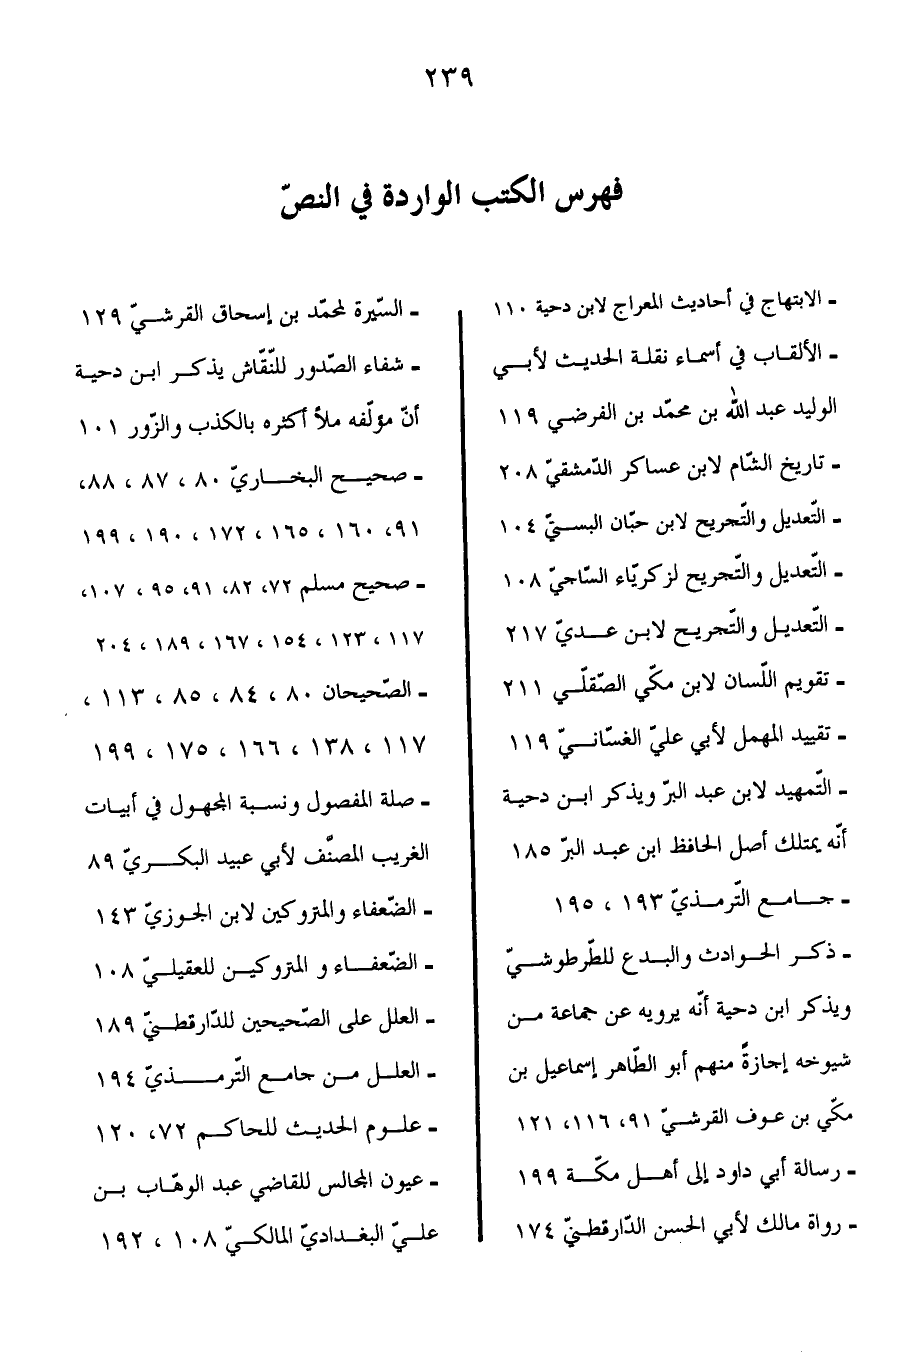 ٢٣٩
فهرس الكتب الواردة في النصّ
- الابتهاج في أحاديث المعراج لابن دحية ١١٠
- الألقـاب في أسمـاء نقلـة الحديـث لأبـي
الوليد عبد الله بن محمّد بن الفرضي ١١٩
- تاريخ الشّام لابن عساكر الدّمشقيّ ٢٠٨
- التّعديل والتّجريح لابن حبّان البستيّ ١٠٤
- التّعديل والتّجريح لزكريّاء السّاجيّ ١٠٨
- التّعديـل والتّجريـح لابـن عــديّ ٢١٧
- تقويم اللّسان لابن مكّي الصّقلّـي ٢١١
- تقييد المهمل لأبي عليّ الغسّانـيّ ١١٩
- التّمهيد لابن عبد البرّ ويذكر ابـن دحيـة
أنّه يمتلك أصل الحافظ ابن عبـد البرّ ١٨٥
- جـامـع التّرمـذيّ ١٩٣ ، ١٩٥
- ذكـر الحـوادث والبـدع للطّرطوشـيّ
ويذكر ابن دحية أنّه يرويه عن جماعة مـن
شيوخه إجازةً منهم أبو الطّاهر إسماعيل بن
مكّي بن عـوف القرشـيّ ٩١، ١١٦، ١٢١
- رسالة أبي داود إلى أهـل مكّـة ١٩٩
- رواة مالك لأبي الحسن الدّارقطنيّ ١٧٤
- السّيرة لمحمّد بن إسحاق القرشـيّ ١٢٩
- شفاء الصّدور للنّقّاش يذكـر ابـن دحيـة
أنّ مؤلّفه ملأ أكثره بالكذب والزّور ١٠١
- صحيـح البخـاريّ ٨٠ ، ٨٧ ، ٨٨،
٩١، ١٦٠ ، ١٦٥ ، ١٧٢ ، ١٩٠ ، ١٩٩
- صحيح مسلم ٧٢، ٨٢، ٩١، ٩٥ ، ١٠٧،
١١٧ ، ١٢٣ ، ١٥٤ ، ١٦٧ ، ١٨٩ ، ٢٠٤
- الصّحيحان ٨٠ ، ٨٤ ، ٨٥ ، ١١٣ ،
١١٧ ، ١٣٨ ، ١٦٦ ، ١٧٥ ، ١٩٩
- صلة المفصول ونسـبة المجهـول في أبيـات
الغريب المصنّف لأبي عبيد البكـريّ ٨٩
- الضّعفاء والمتروكين لابن الجـوزيّ ١٤٣
- الضّعفـاء و المتروكيـن للعقيلـيّ ١٠٨
- العلل على الصّحيحين للدّارقطـنيّ ١٨٩
- العلـل مـن جامـع التّرمــذيّ ١٩٤
- علـوم الحديـث للحاكـم ٧٢، ١٢٠
- عيون المجالس للقاضي عبد الوهّـاب بـن
علـيّ البغـداديّ المالكـيّ ١٠٨ ، ١٩٢